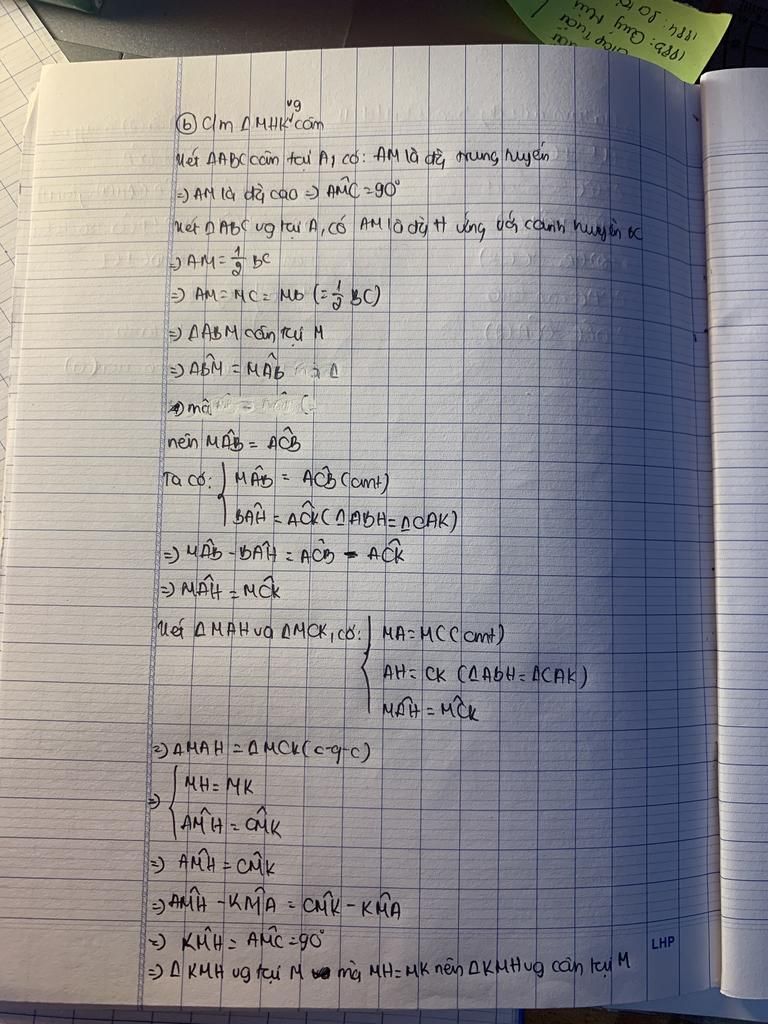 1984: Qúy Hợi
Giáp Tuất
ⓑ C/m ΔMHK vg cân
Xét ΔABC cân tại A, có: AM là đg trung tuyến
=) AM là đg cao =) AM̂C = 90°
Xét ΔABC vg tại A, có AM là đg tt ứng với cạnh huyền BC
=) AM = 1/2 BC
=) AM = MC = MB (= 1/2 BC)
=) ΔABM cân tại M
=) AB̂M = MÂB
=) mà
nên MÂB = AĈB
Ta có: { MÂB = AĈB (cmt)
BÂH = AĈK (ΔABH = ΔCAK)
=) MÂB - BÂH = AĈB - AĈK
=) MÂH = MĈK
Xét ΔMAH và ΔMCK, có: { MA = MC (cmt)
AH = CK (ΔABH = ΔCAK)
MÂH = MĈK
=) ΔMAH = ΔMCK (c-g-c)
=) { MH = MK
AM̂H = CM̂K
=) AM̂H = CM̂K
=) AM̂H - KM̂A = CM̂K - KM̂A
=) KM̂H = AM̂C = 90°
=) ΔKMH vg tại M mà MH = MK nên ΔKMH vg cân tại M
LHP